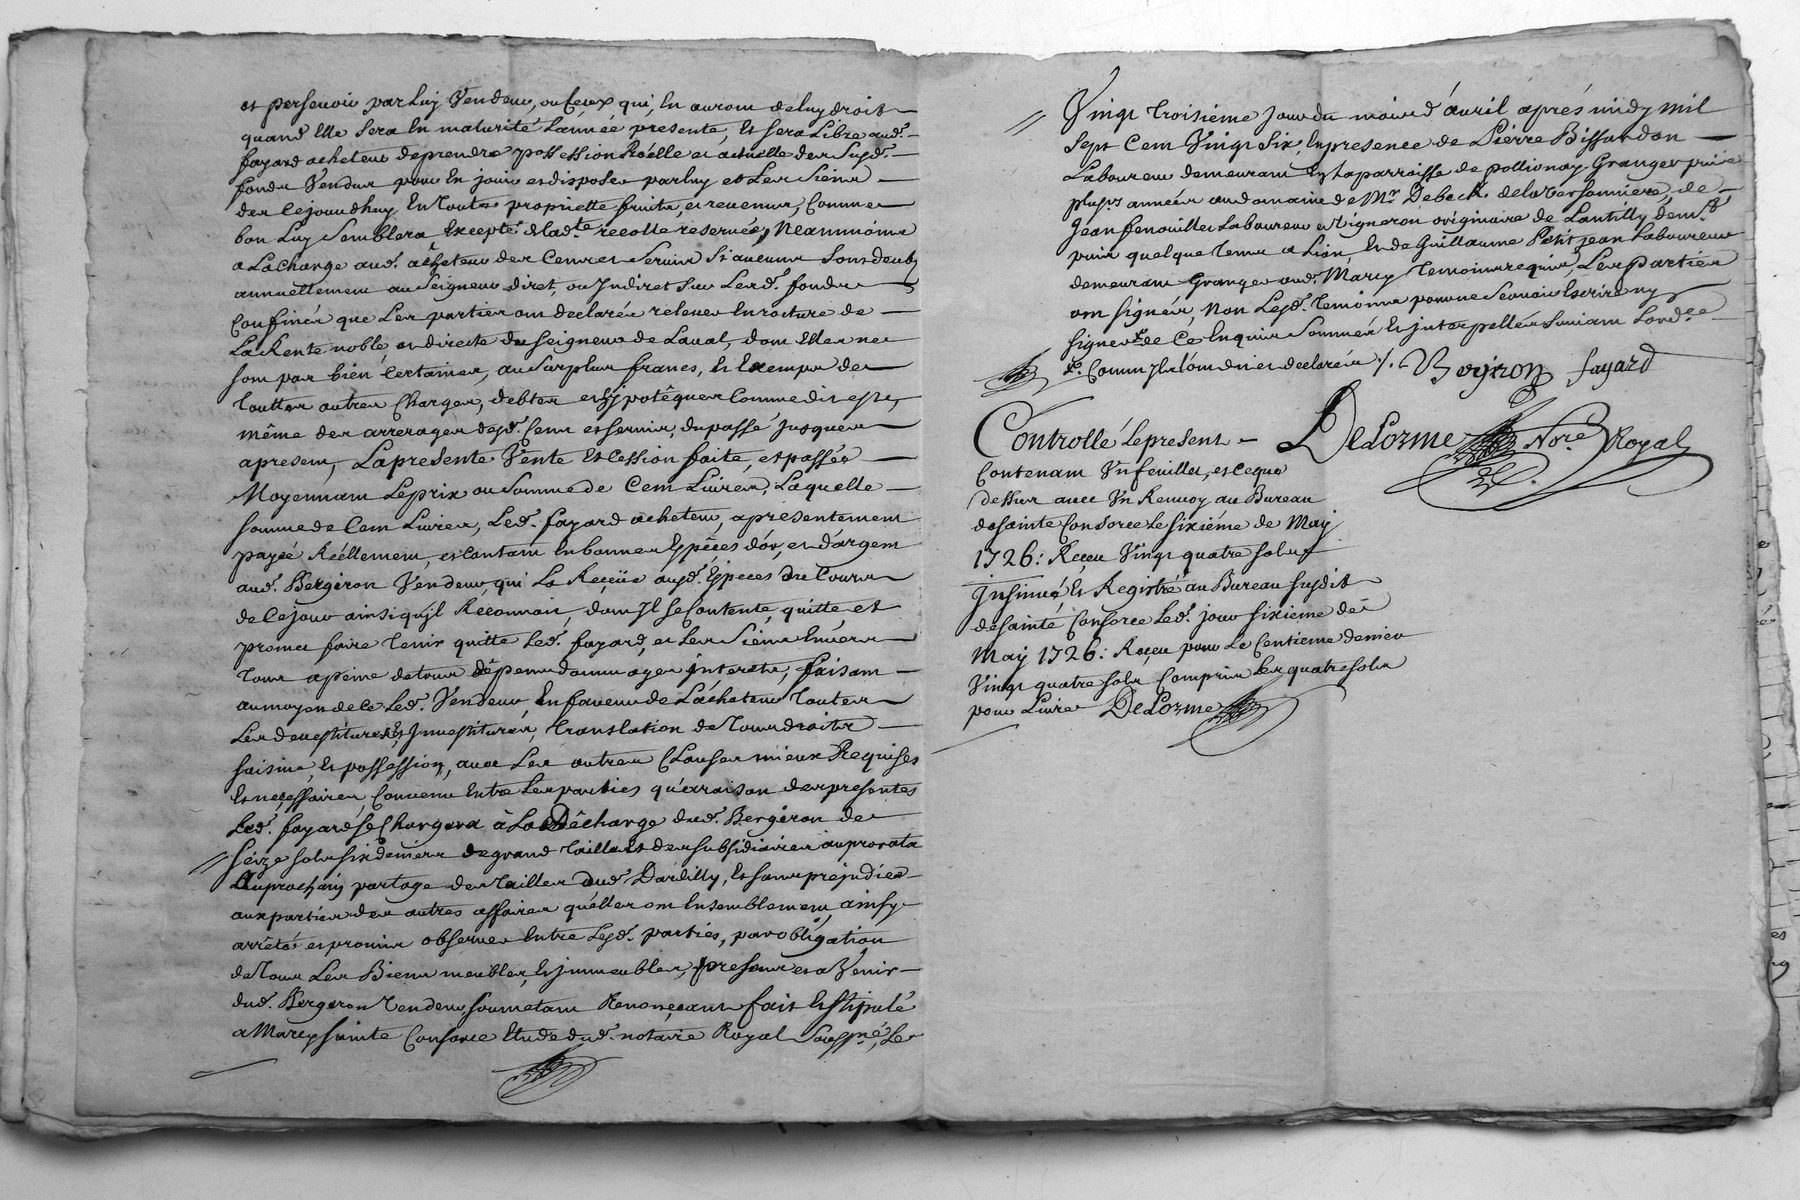 et persevoir par luy Vendeur, ou ceux qui en auront de luy droit
quand Elle sera En maturité L'année presente, Et sera Libre aud.
fayard acheteur de prendre possession Réelle et actuelle des Susd.
fonds Vendus pour En jouir et disposer par luy et Les Siens
des Cejourdhuy En Toutes proprietté fruits, et revenus, Comme
bon Luy Semblera Excepté Lad.te recolte reservée, Neammoins
a La Charge aud. acheteur des Cens et Servis Si aucuns Sont deubs
annuellement au Seigneur diret, ou Indiret Sur Lesd. fonds
Confinés que Les parties ont declarés relever En roture de
La Rente noble et directe du Seigneur de Laval, dont Elles ne
sont pas bien Certaines, au Surplus francs, Et Exempts de
Touttes autres Charges, debtes et hypotêques Comme dit est,
même des arrerages desd. Cens et servis, du passé jusques
apresent, La presente Vente Et Cession faite, et passée
Moyennant Le prix ou Somme de Cent Livres, Laquelle
somme de Cent Livres, Led. fayard acheteur, a presentement
payée Réellement, et Contant En bonnes Espêces d'or, et d'argent
aud. Bergeron Vendeur, qui La Reçeüe ausd. Espêces du Cours
de Cejour ainsi qu'jl Reconnoit, dont Jl se Contente, quitte, et
promet faire Tenir quitte Led. fayard, et Les Siens Envers
Tous apeine de tous dêpens dommages jnterets, faisant
au moyen de ce Led. Vendeur En faveur de L'acheteur Toutes
Les devestitures Et jnvestitures, Translation de Tous droits
saisine, Et possession, avec Les autres Clauses mieux Requises
Et neçessaires, Convenu Entre Les parties qu'à raison des presentes
Led. fayard se Chargera à La Dêcharge dud. Bergeron de
Seize sols six deniers de grand Taille Et des subsidiaires au prorata
au prochain partage des Tailles dud. Dardilly, Et sans prejudice
aux parties des autres affaires qu'elles ont Ensemblement, ainsy
arrêté et promis observer Entre Lesd. parties, par obligation
de Tous Les Biens meubles, Et jmmeubles, presens et a Venir
dud. Bergeron Vendeur, soumetant Renonçants fait Et stipulé
a Marcy sainte Consorce Etude dud. notaire Royal Soussné, Le
Vingt Troisieme Jour du mois d'avril aprés midy mil
Sept Cent Vingt Six, En presence de Pierre Bissardon
Laboureur demeurant En La parroisse de pollionay Granger puis
plus.rs années au domaine de Mr. Debeck, de
Jean fenouillet Laboureur et Vigneron originaire de Lantilly dem.t
puis quelque Tems a Lion, Et de Guillaume Petitjean Laboureur
demeurant Granger aud. Marcy Temoins requis, Les parties
ont signés, Non Lesd. Temoins pour ne Scavoir Escrire ny
signer de Ce Enquis Sommés Et jnterpellés Suivant Lord.ce
Comm' Jls L'ont dit et declarés ./. Bergiron fayard
Controllé Le present DeLorme Nore Royal
Contenant Un feuillet, et Ce que
dessus avec Un Renvoy au Bureau
de sainte Consorce Le sixiéme de May
1726: Reçeu Vingt quatre sols
Jnsinué Et Registré au Bureau susdit
de sainte Consorce Led. jour sixieme de
May 1726: Reçeu pour Le Centieme denier
Vingt quatre sols Compris Les quatre sols
pour Livre DeLorme